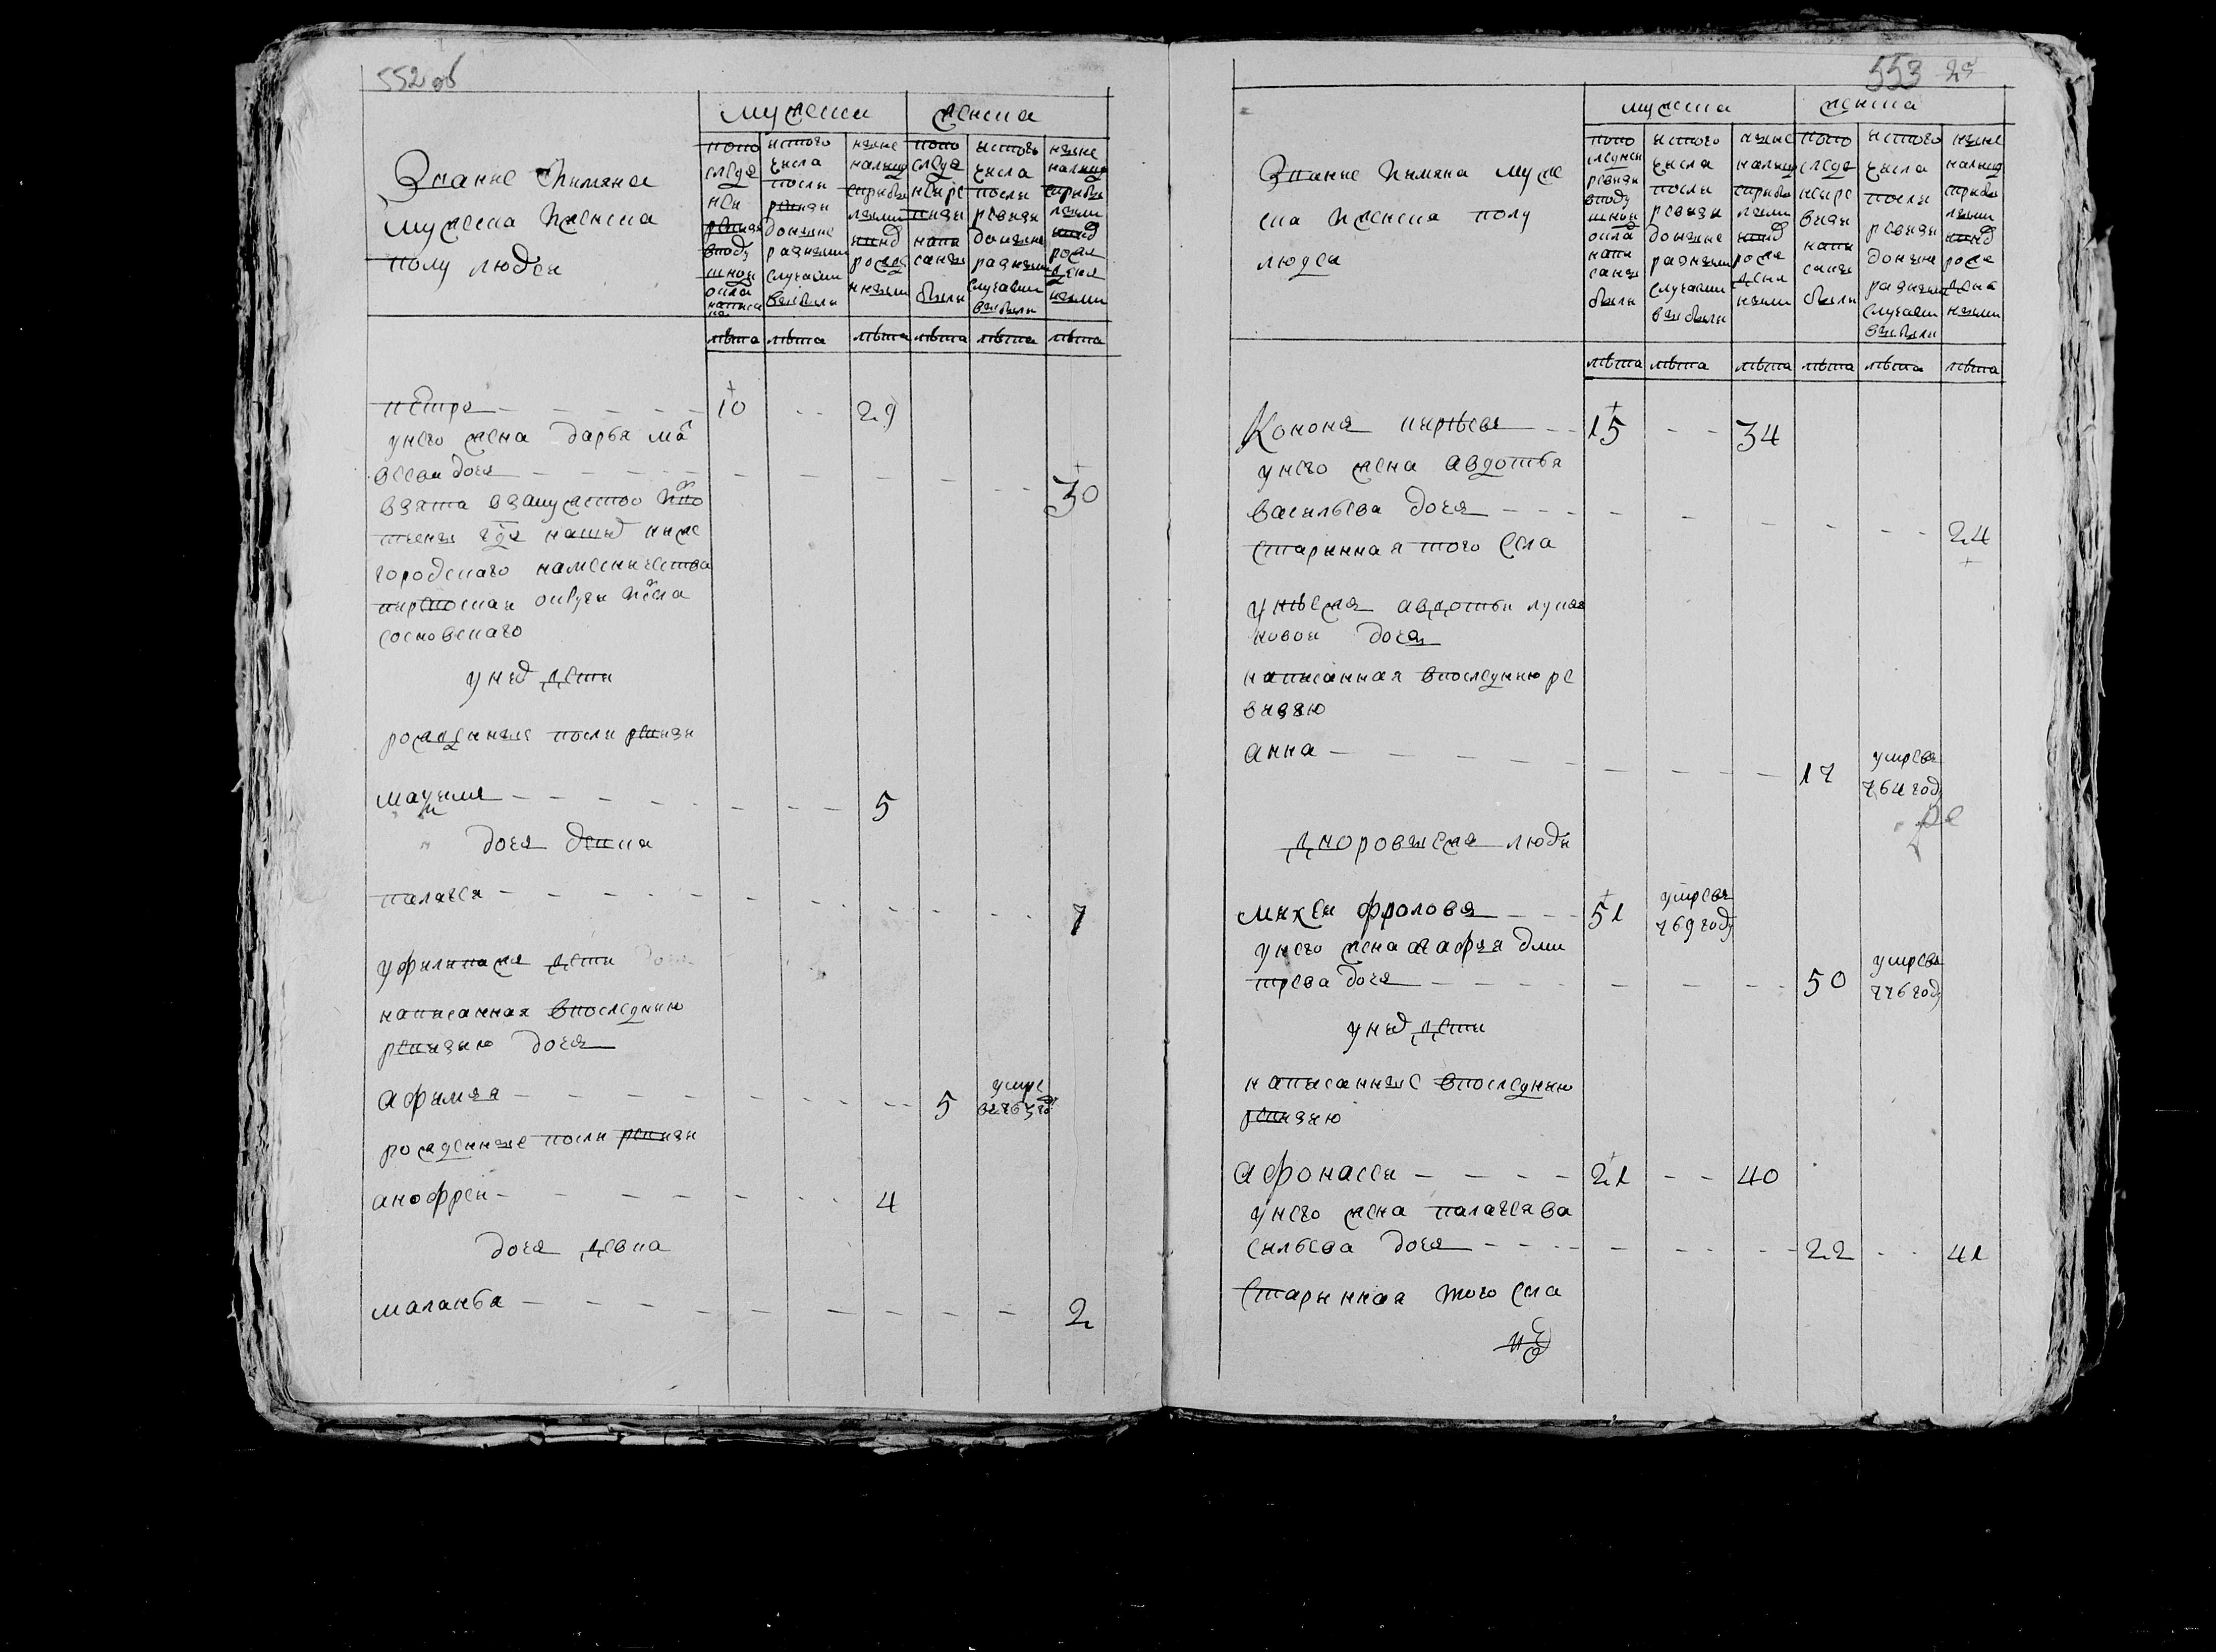 552 об
Звание и имяна
мужеска и женска
полу людей
мужеска
женска
по по
следн
ней
ревизи
в поду
шной
оклад
написа
но
ис того
числа
после
ревизи
до ныне
разными
случаями
выбыли
ныне
налицо
с прибы
лыми
и вновь
рожд
ными
по по
следн
ней ре
визи
напи
саны
были
ис того
числа
после
ревизи
до ныне
разными
случаями
выбыли
ныне
налицо
с прибы
лыми
и вновь
рож
ден
ными
лѣта лѣта лѣта лѣта лѣта лѣта
петръ 10 29
у него жена дарья ма
веева дочь 30
взята в замужество
ниже
городскаго наместничества
округи села
сосновскаго
у них дети
рожденныя после ревизи
5
дочь девка
палагея 7
у филипа ж дети
написанная в последнию
ревизию дочь
афимья 5 умре
въ 763 год
рожденные после ревизи
анофрей 4
дочь девка
маланья 2
553
Звание и имяна муже
ска и женска полу
людей
мужеска
женска
по по
следней
ревизи
в поду
шной
оклад
напи
саны
были
ис того
числа
после
ревизи
до ныне
разными
случаями
выбыли
ныне
налицо
с прибы
лыми
и вновь
рож
ден
ными
по по
следн
ней ре
визи
напи
саны
были
ис того
числа
после
ревизи
до ныне
разными
случаями
выбыли
ныне
налицо
с прибы
лыми
и вновь
рож
ден
ными
лѣта лѣта лѣта лѣта лѣта лѣта
Кононъ кирѣевъ 15 34
у него жена авдотья
васильева дочь 24
старинная того села
у нѣежъ авдотьи лукья
новой дочь
написанная в последнию ре
визию
анна 17 умрела
764 году
дворовыежъ люди
михей фроловъ 51 умреъ
769 году
у него жена агафья дми
трева дочь 50 умрела
776 году
у них дети
написанные в последнию
ревизию
афонасей 21 40
у него жена палагея ва
сильева дочь 22 41
старинная того села